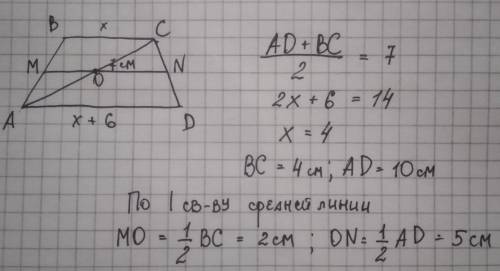 B x C
M 7см N
O
A x + 6 D
AD + BC / 2 = 7
2x + 6 = 14
x = 4
BC = 4 см ; AD = 10 см
По | св-ву средней линии
MO = 1/2 BC = 2 см ; ON = 1/2 AD = 5 см